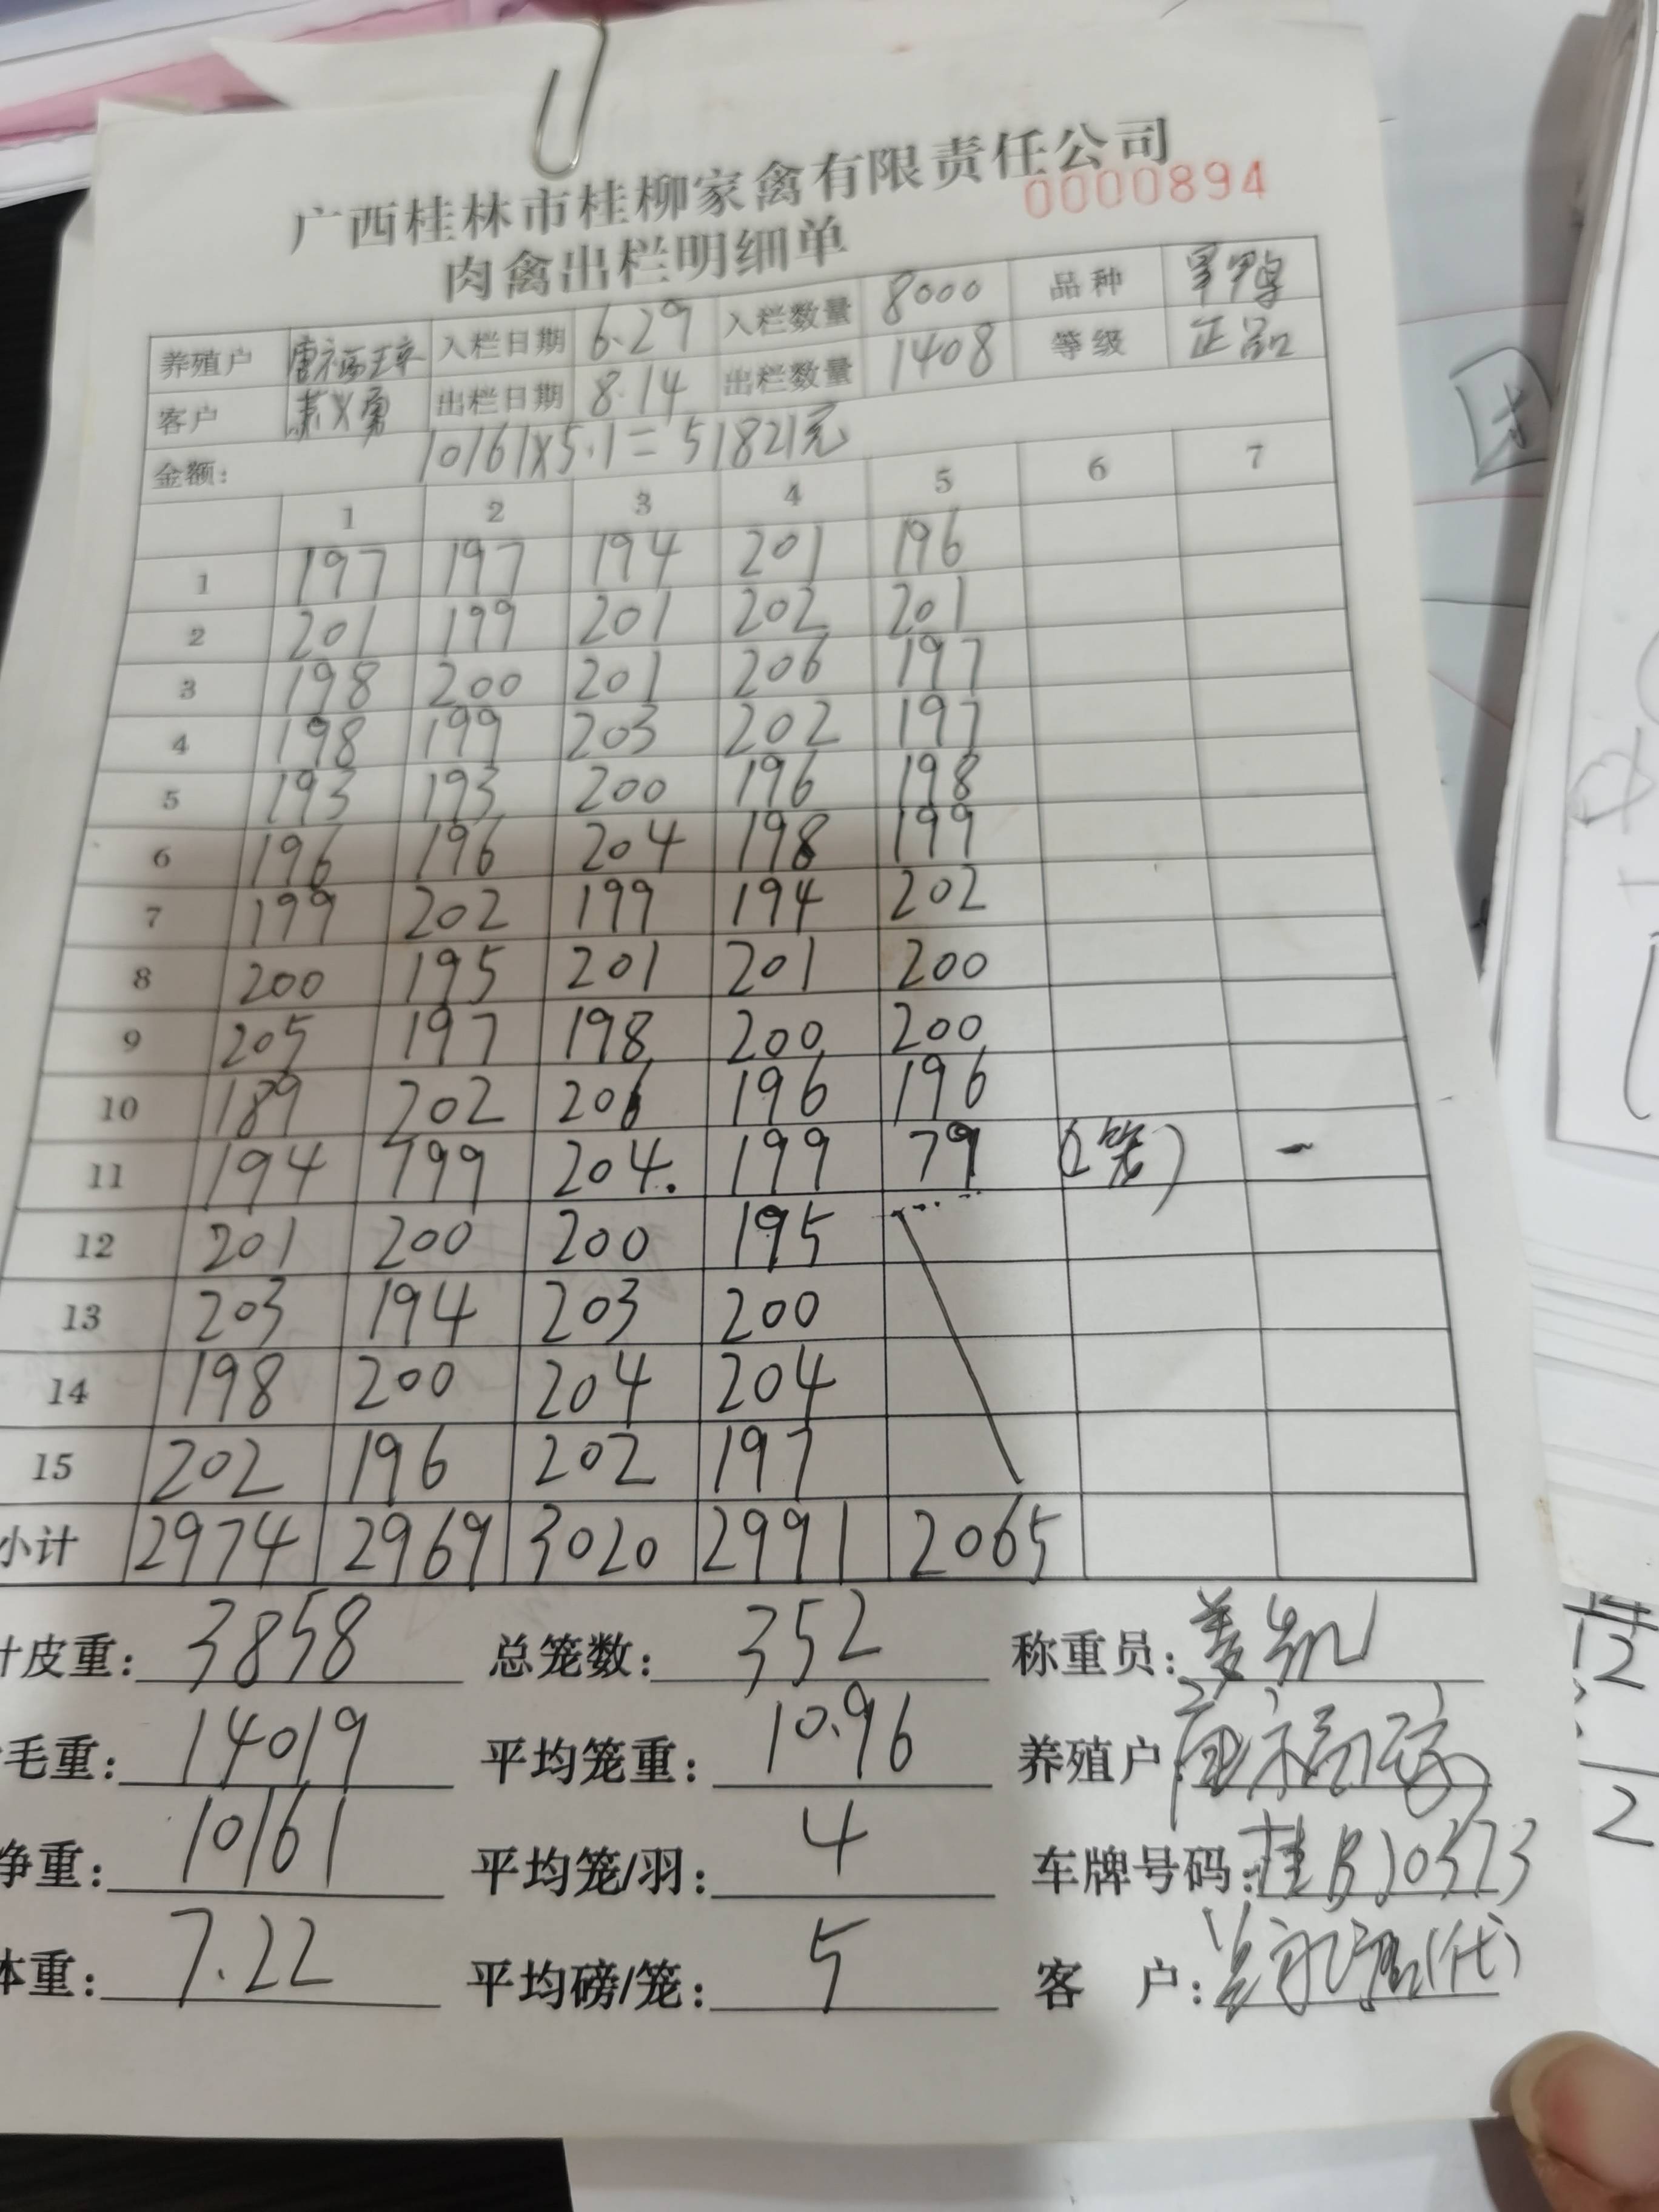 广西桂林市桂柳家禽有限责任公司
0000894
肉禽出栏明细单
养殖户 唐福 入栏日期 6.29 入栏数量 8000 品种 鸭
客户 勇 出栏日期 8.14 出栏数量 1408 等级 正品
金额: 10161X5.1=51821元
1 2 3 4 5 6 7
1 197 197 194 201 196
2 201 199 201 202 201
3 198 200 201 206 197
4 198 199 203 202 197
5 193 193 200 196 198
6 196 196 204 198 199
7 199 202 199 194 202
8 200 195 201 201 200
9 205 197 198 200 200
10 189 202 206 196 196
11 194 199 204. 199 79 (2笼) -
12 201 200 200 195
13 203 194 203 200
14 198 200 204 204
15 202 196 202 197
小计 2974 2969 3020 2991 2065
计皮重: 3858 总笼数: 352 称重员: 姜
毛重: 14019 平均笼重: 10.96 养殖户: 唐福
净重: 10161 平均笼/羽: 4 车牌号码: 桂B
体重: 7.22 平均磅/笼: 5 客 户: (代)